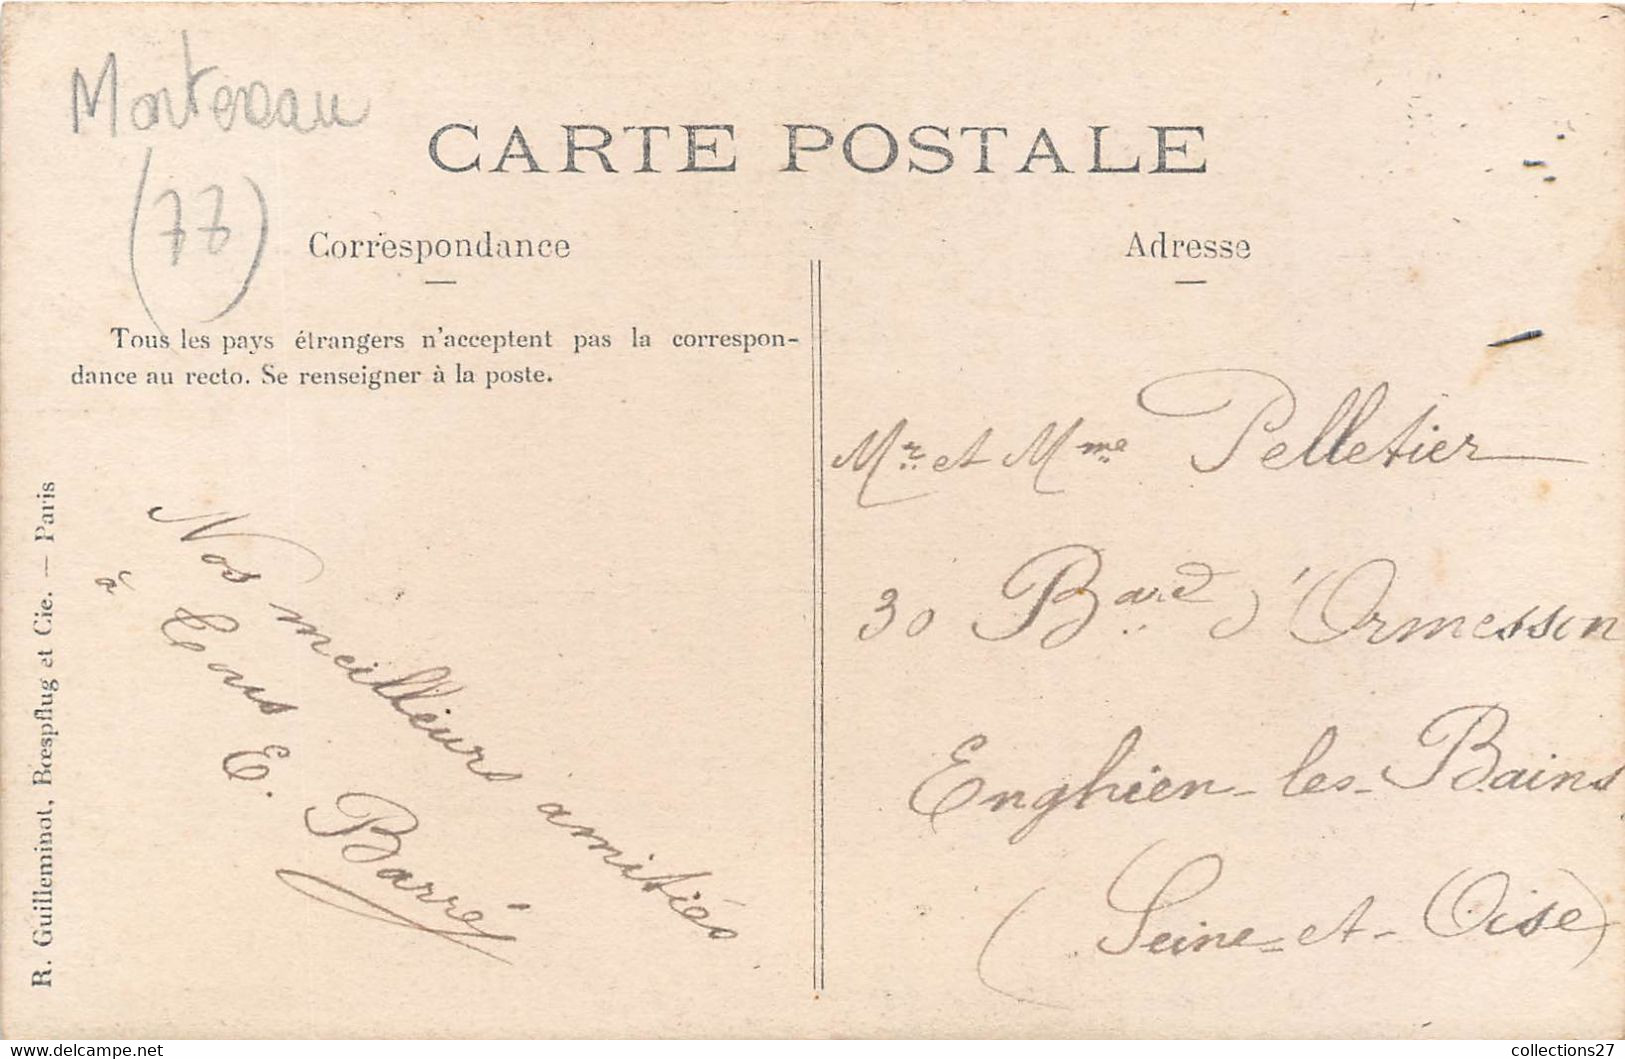 Montereau
(77)
CARTE POSTALE
Correspondance
Tous les pays étrangers n'acceptent pas la correspon-
dance au recto. Se renseigner à la poste.
R. Guilleminot, Bœspflug et Cie. — Paris
Nos meilleurs amitiés
à Tous
E. Barré
Adresse
Mr. et Mme Pelletier
30 Bard d'Ormesson
Enghien-les-Bains
(Seine-et-Oise)
collections27